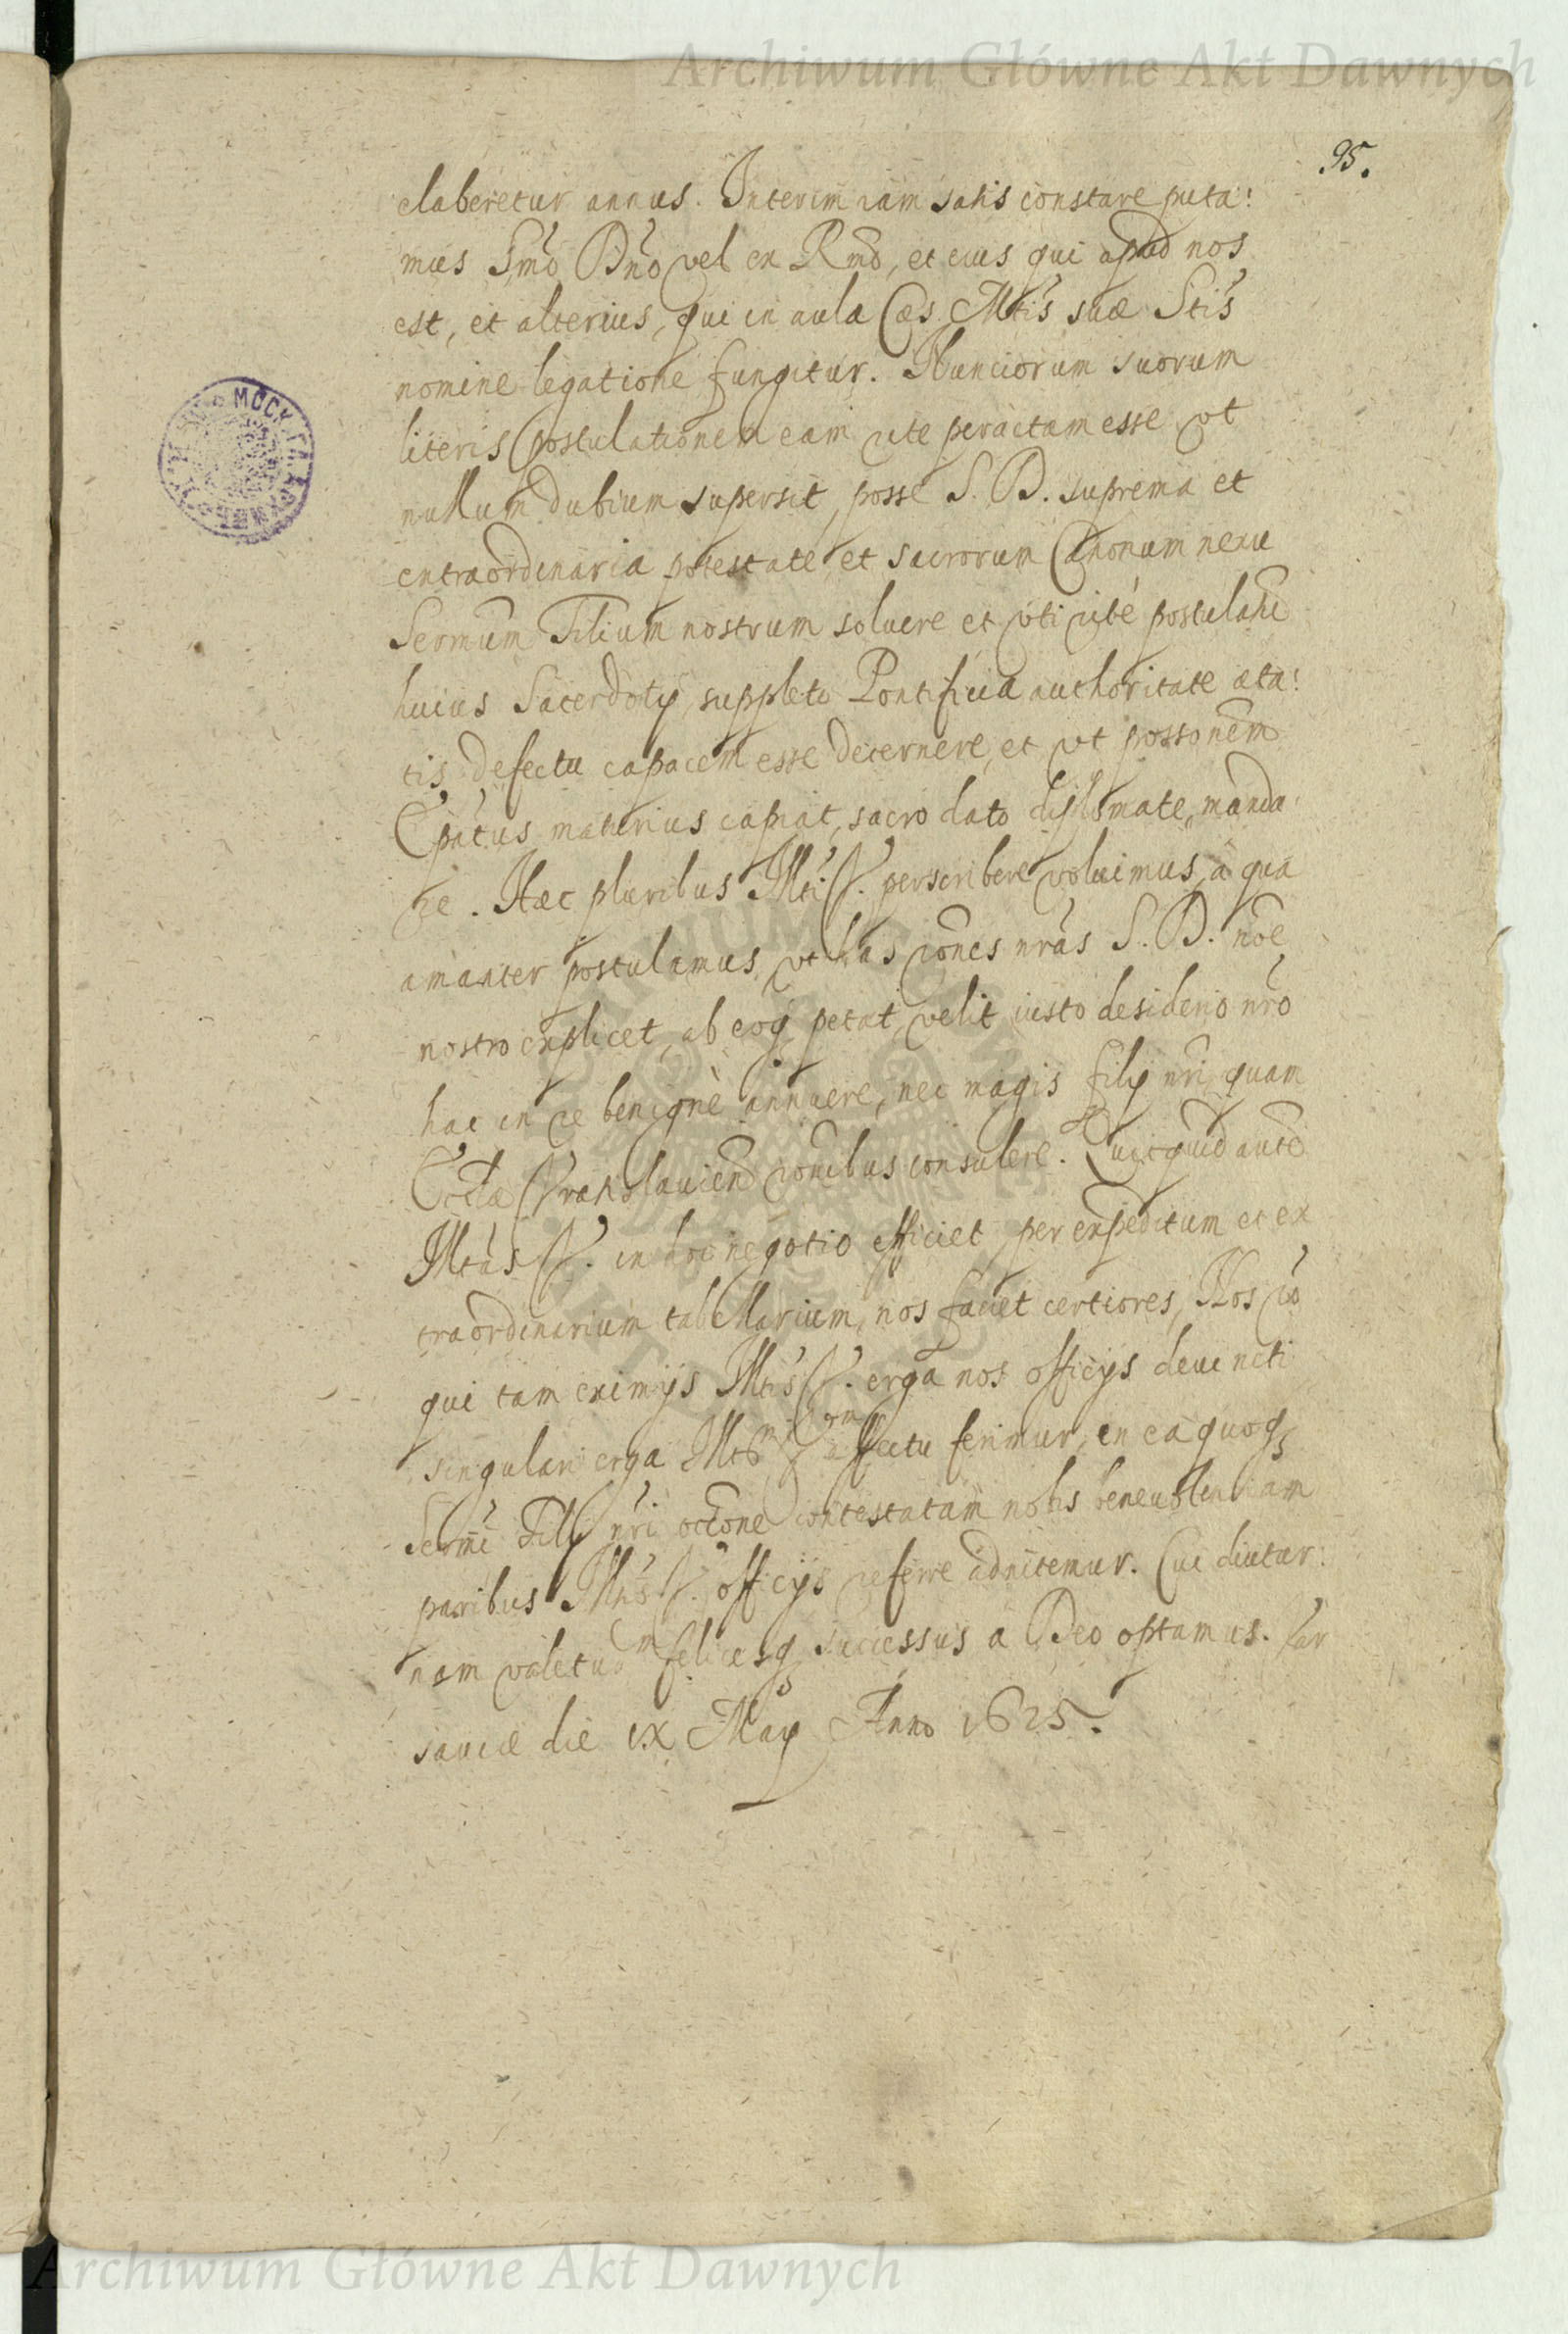 Archiwum Główne Akt Dawnych
95.
elaberetur annus. Interim iam satis constare puta:
mus Smo Dno vel ex Rmo, et eius qui apud nos
est, et alterius, qui in aula Caes. Mtis suae Stis
nomine legatione fungitur. Nunciorum suorum
literis postulationem eam rite peractam esse vt
nullum dubium supersit, posse S. D. suprema et
extraordinaria potestate et sacrorum Canonum nexu
Sermum Filium nostrum soluere et vti rité postulatū
huius Sacerdotij, suppleto Pontificia authoritate aeta:
tis defectu capacem esse decernere, et vt possonem
Epatus maturius capiat, sacro dato diplomate, manda:
re. Haec pluribus Mti V. perscribere voluimus, a qua
amanter postulamus, vt has rones nras S. D. noe
nostro explicet, ab eoq petat, velit iusto desiderio nro
hac in re benignè annuere, nec magis filij nri, quam
Ecclae Vratislauien ronibus consulere. Quicquid autē
Mtas V. in hoc negotio efficiet, per expeditum et ex
traordinarium tabellarium, nos faciet certiores, Nos vo
qui tam eximijs Mtis V. erga nos officijs deuincti
singulari erga Mtem Vram affectu ferimur, in ea quoq
Sermi Filij nri occone contestatam nobis beneuolentiam
paribus Mtis V. officijs referre adnitemur. Cui diutur:
nam valetudem felicesq successus a Deo optamus. Var
sauiae die IX Maij Anno 1625.
МОСК
Archiwum Główne Akt Dawnych